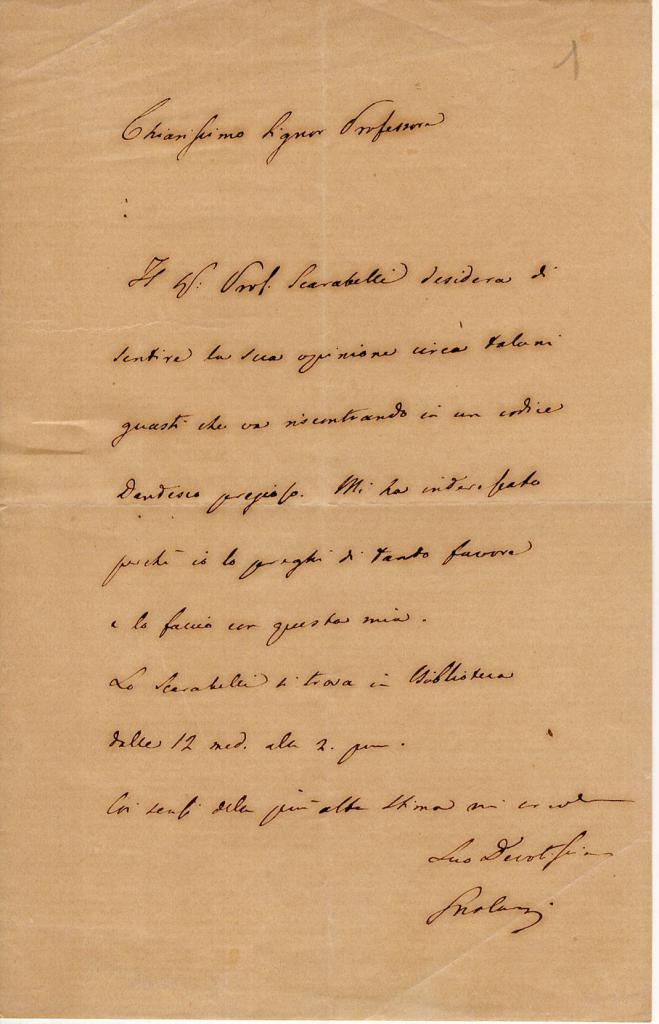 1
Chiarissimo Signor Professore
Il S. Prof. Scarabelli desidera di
sentire la sua opinione circa taluni
guasti che va riscontrando in un codice
Dantesco pregioso. Mi ha interessato
perchè io lo preghi di tanto favore
e lo faccio con questa mia.
Lo Scarabelli si trova in Biblioteca
dalle 12 med. alle 2. pm.
Coi sensi della più alta stima mi
Suo Devotissimo